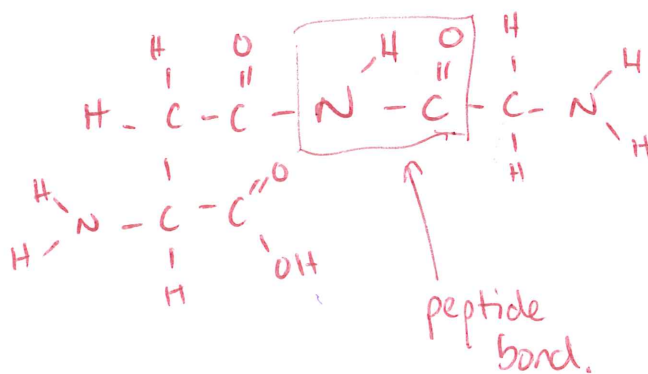 H O H O H
H - C - C - N - C - C - N H
H
H N - C - C O H
H OH
H
peptide
bond.